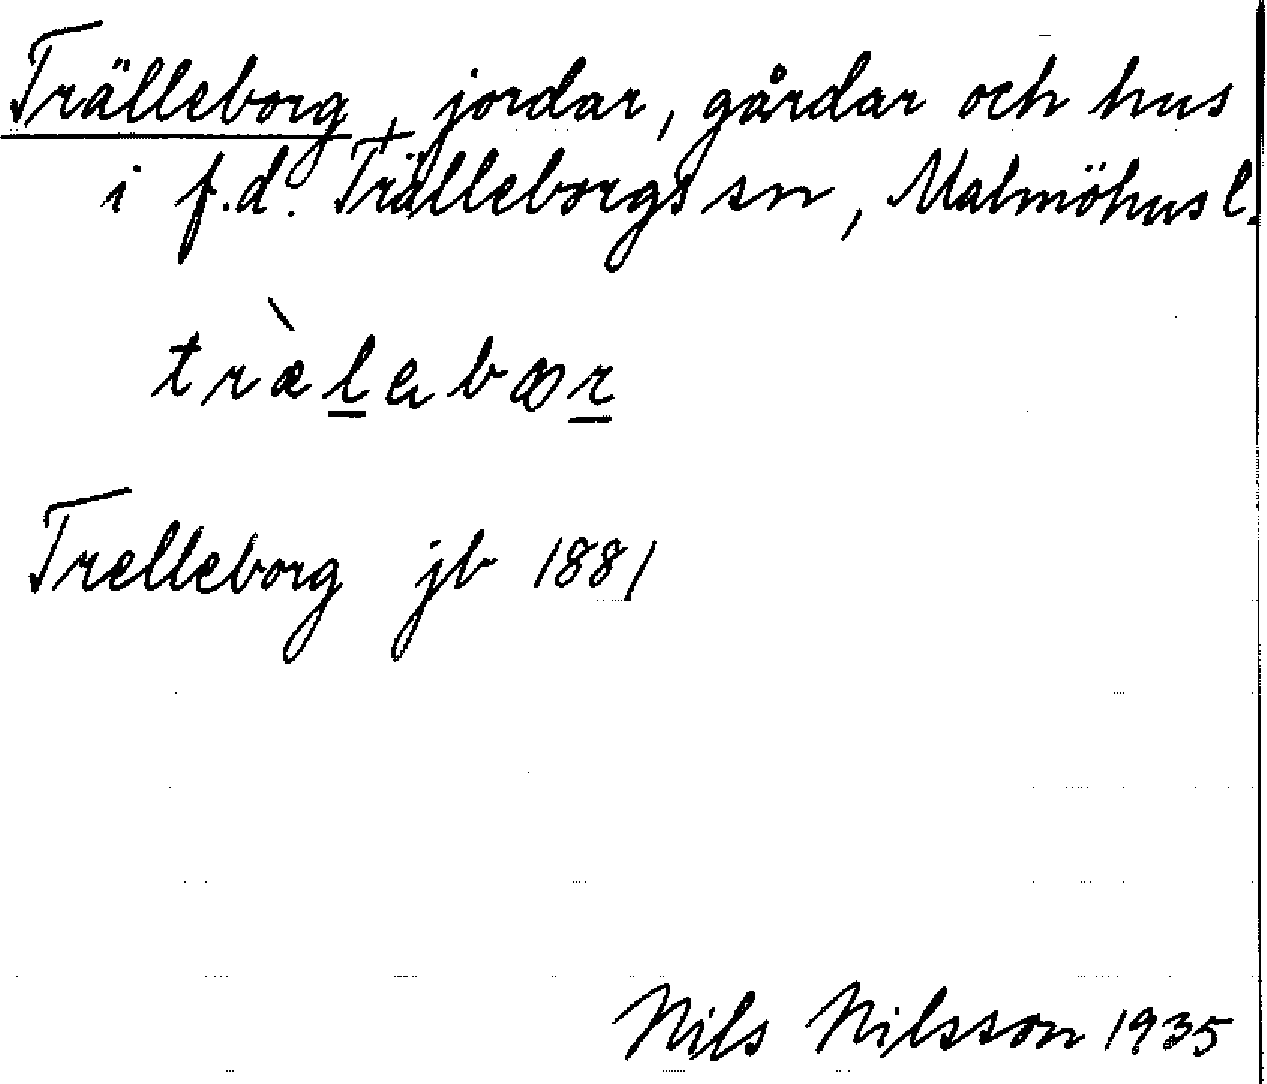 Trälleborg, jordar, gårdar och hus
i f.d. Trälleborgs sn, Malmöhus l.
Trelleborg jb 1881
Nils Nilsson 1935